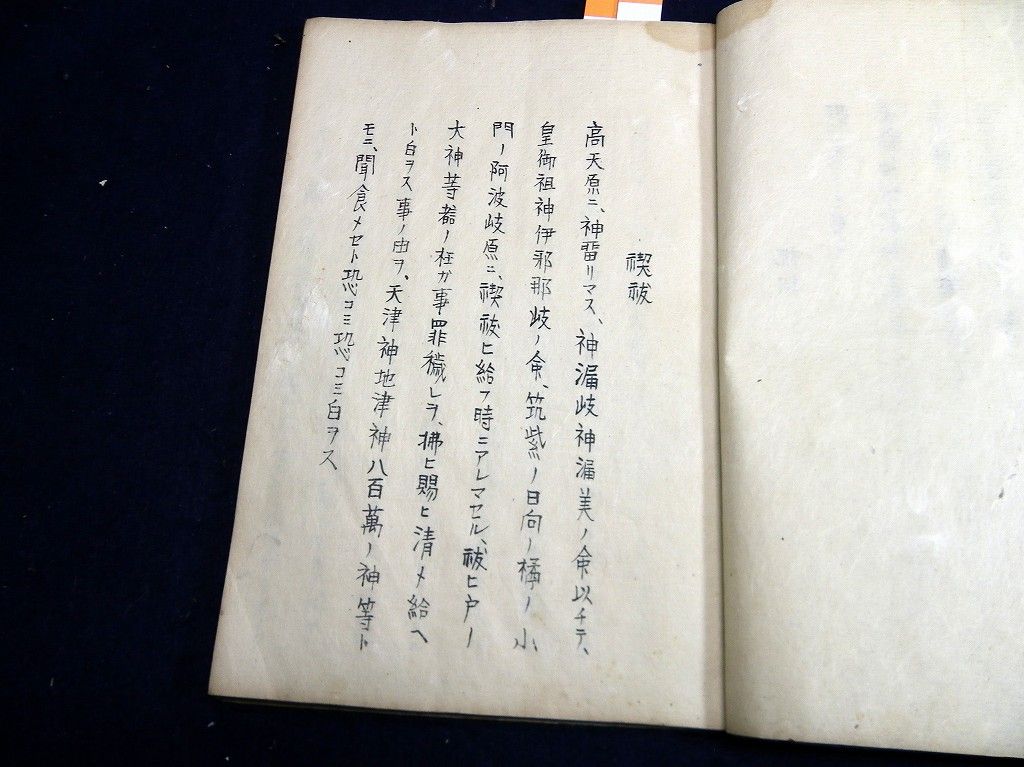 禊祓
高天原ニ、神畱リマス、神漏岐神漏美ノ命以チテ、
皇御祖神伊邪那岐ノ命、筑紫ノ日向ノ橘ノ小
門ノ阿波岐原ニ、禊祓ヒ給フ時ニアレマセル、祓ヒ戸ノ
大神等諸ノ枉カ事罪穢レヲ、拂ヒ賜ヒ清メ給ヘ
ト白ヲス事ノ由ヲ、天津神地津神八百萬ノ神等ト
モニ、聞食メセト恐コミ恐コミ白ヲス